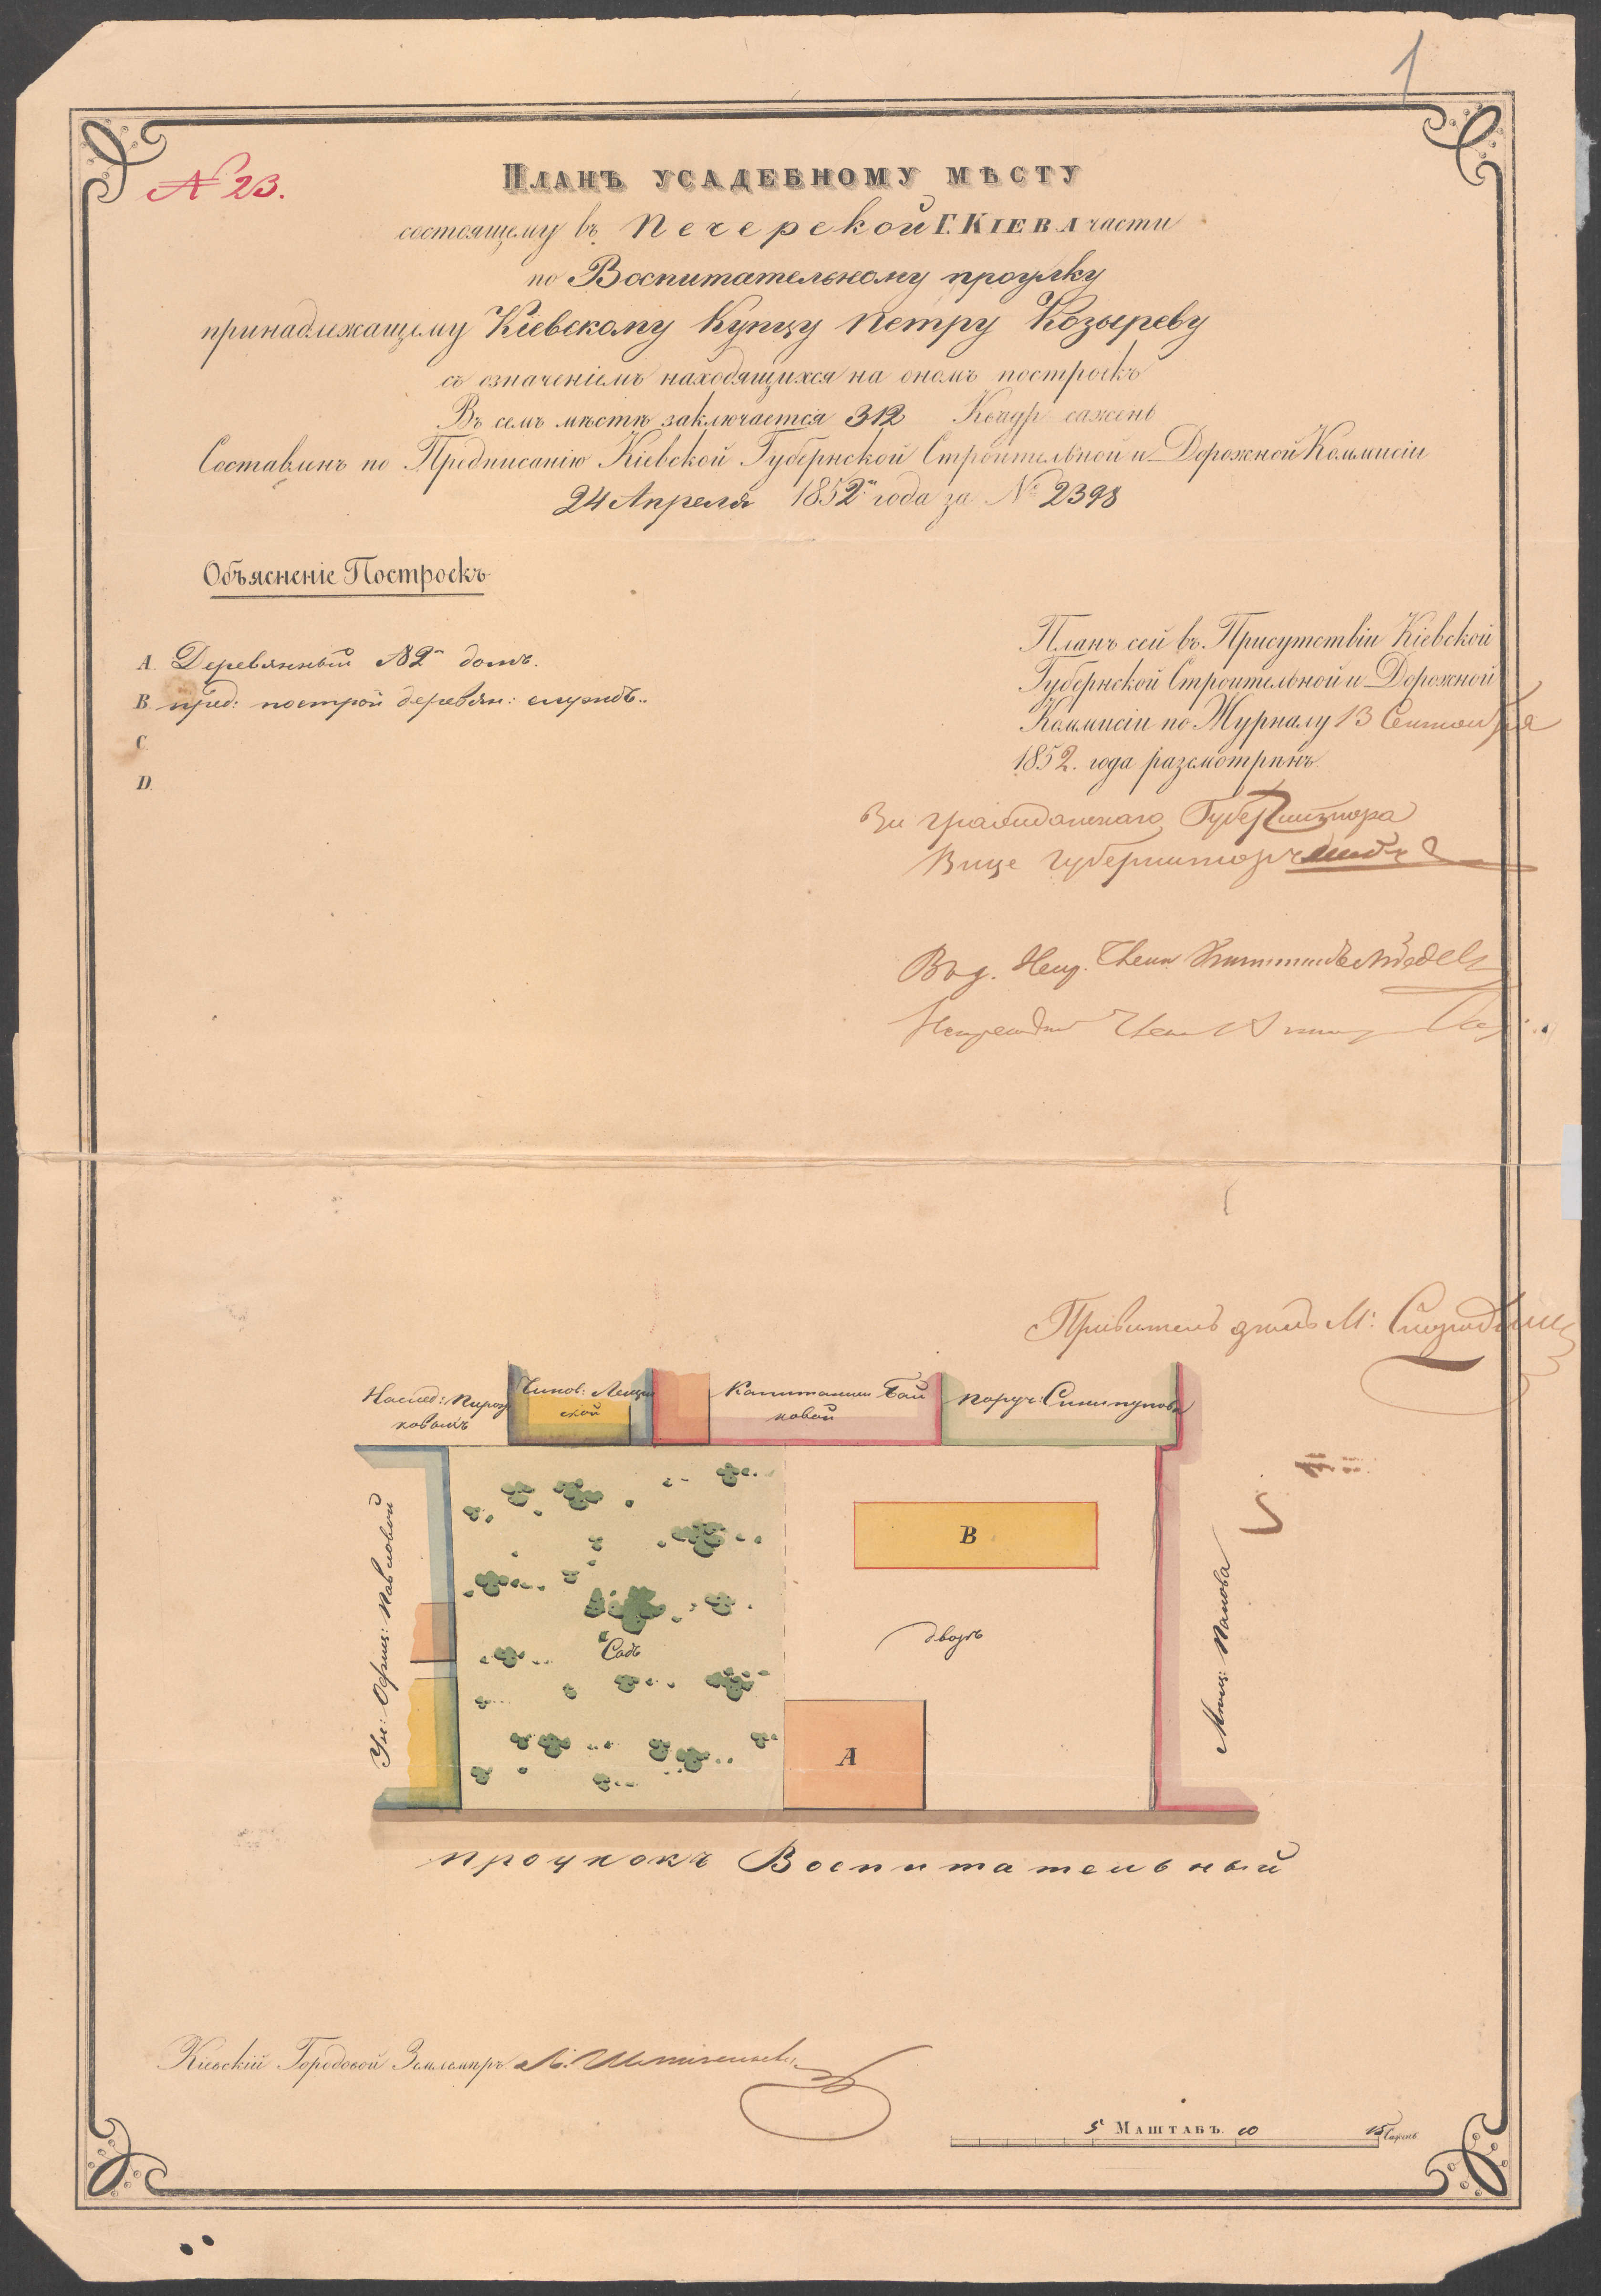 1
№ 23.
Планъ усадебному мѣсту
состоящему въ Печерской Г. Кіева части
по Воспитательному проулку
принадлежащему Кіевскому Купцу Петру Козыреву
съ означеніемъ находящихся на ономъ построекъ
Въ семъ мѣстѣ заключается 312 Квадр сажень
Составленъ по Предписанію Кіевской Губернской Строительной и Дорожной Коммисіи
24 Апреля 1852 года за № 2398
Объясненіе Построекъ
A. Деревянный №2й домъ.
B. пред: построй деревян: службъ..
C.
D.
Планъ сей въ Присутствіи Кіевской
Губернской Строительной и Дорожной
Коммисіи по Журналу 13 Сентября
1852. года разсмотрѣнъ.
За гражданскаго Губернатора
Вице Губернаторъ
Члена
Членъ
дѣлъ М:
Наслед: Пирож
ковамъ
Чинов:
ской
Капитанши Бай
ковой
Поруч:
Ун: Офиц: Павловой
Садъ
B
дворъ
A
Мѣщ: Попова
проулокъ Воспитательный
Кіевскій Городовой Землемѣръ
5 Маштабъ. 10 15 Сажень